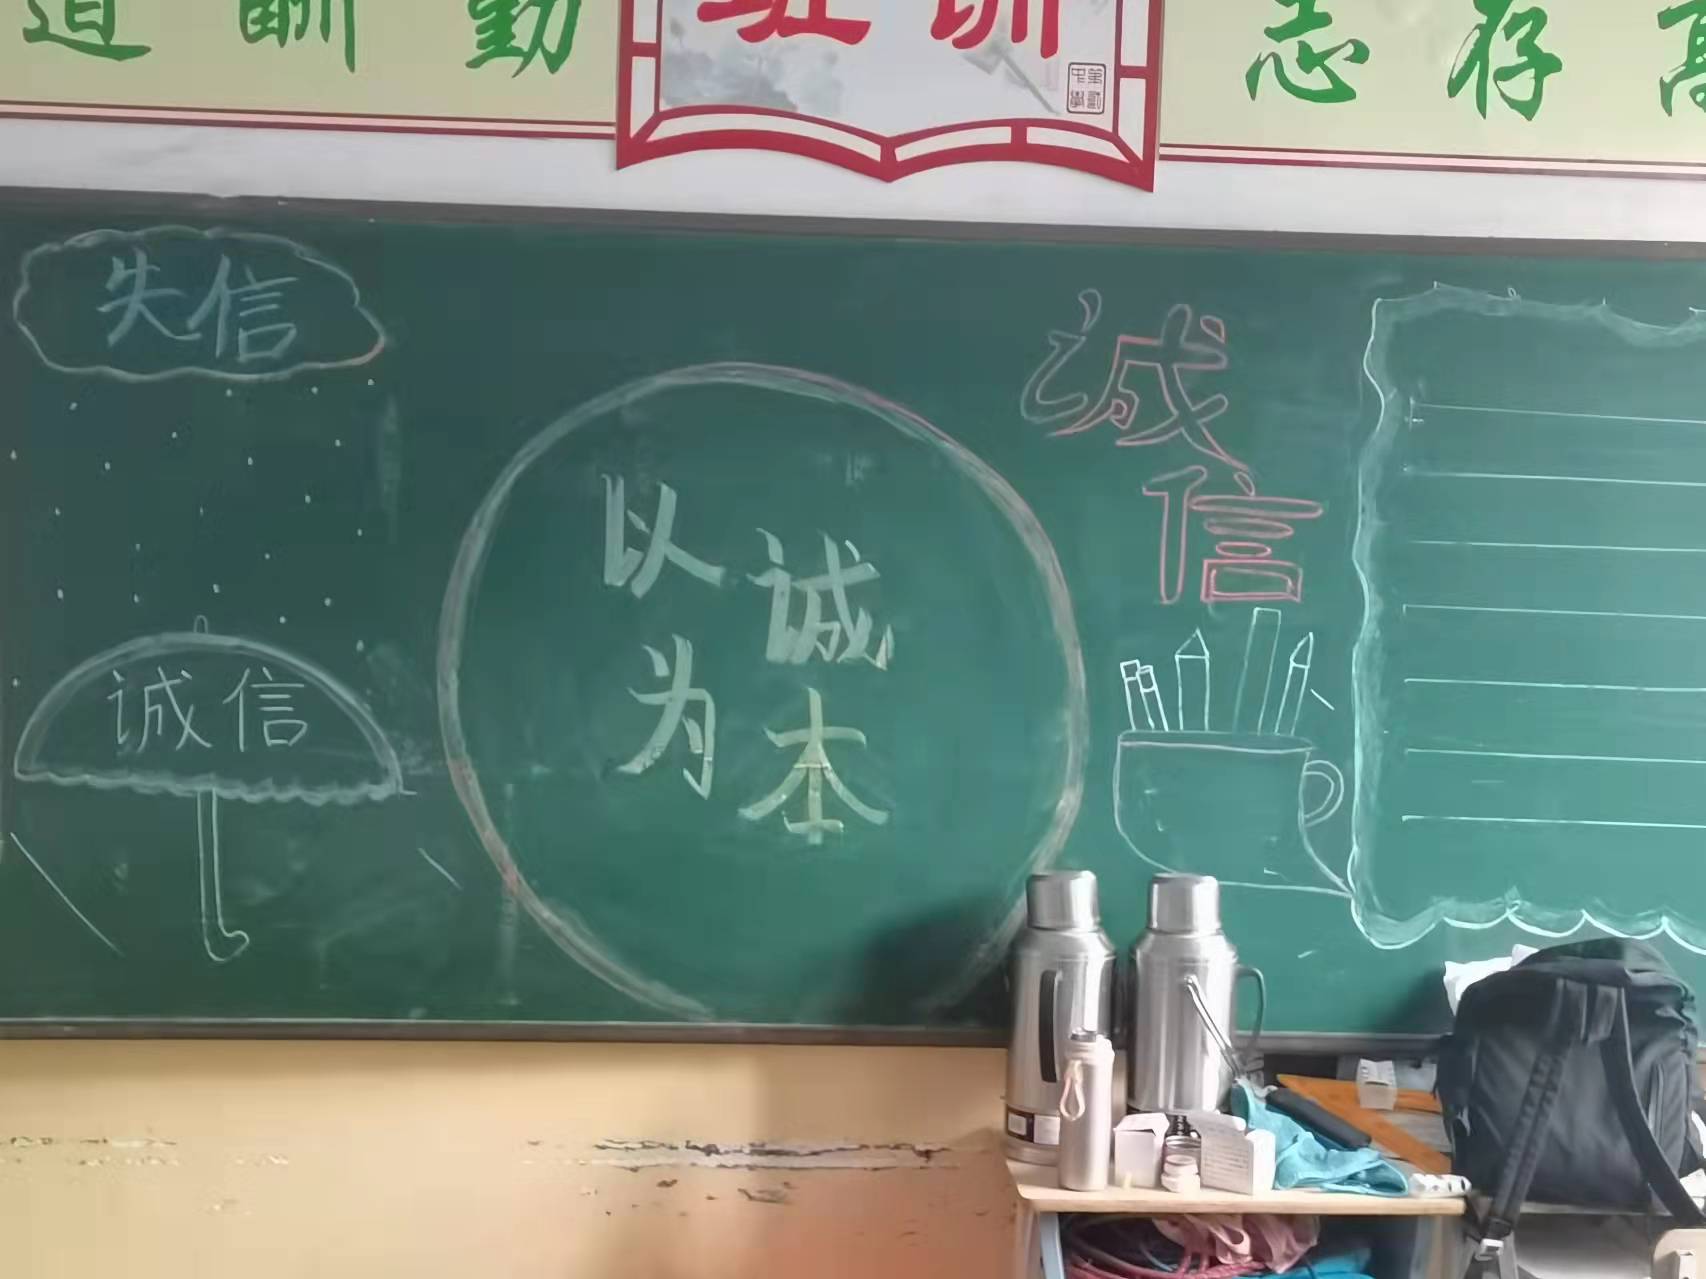 道酬勤
班训
志存高
失信
诚信
以诚
为本
诚
信